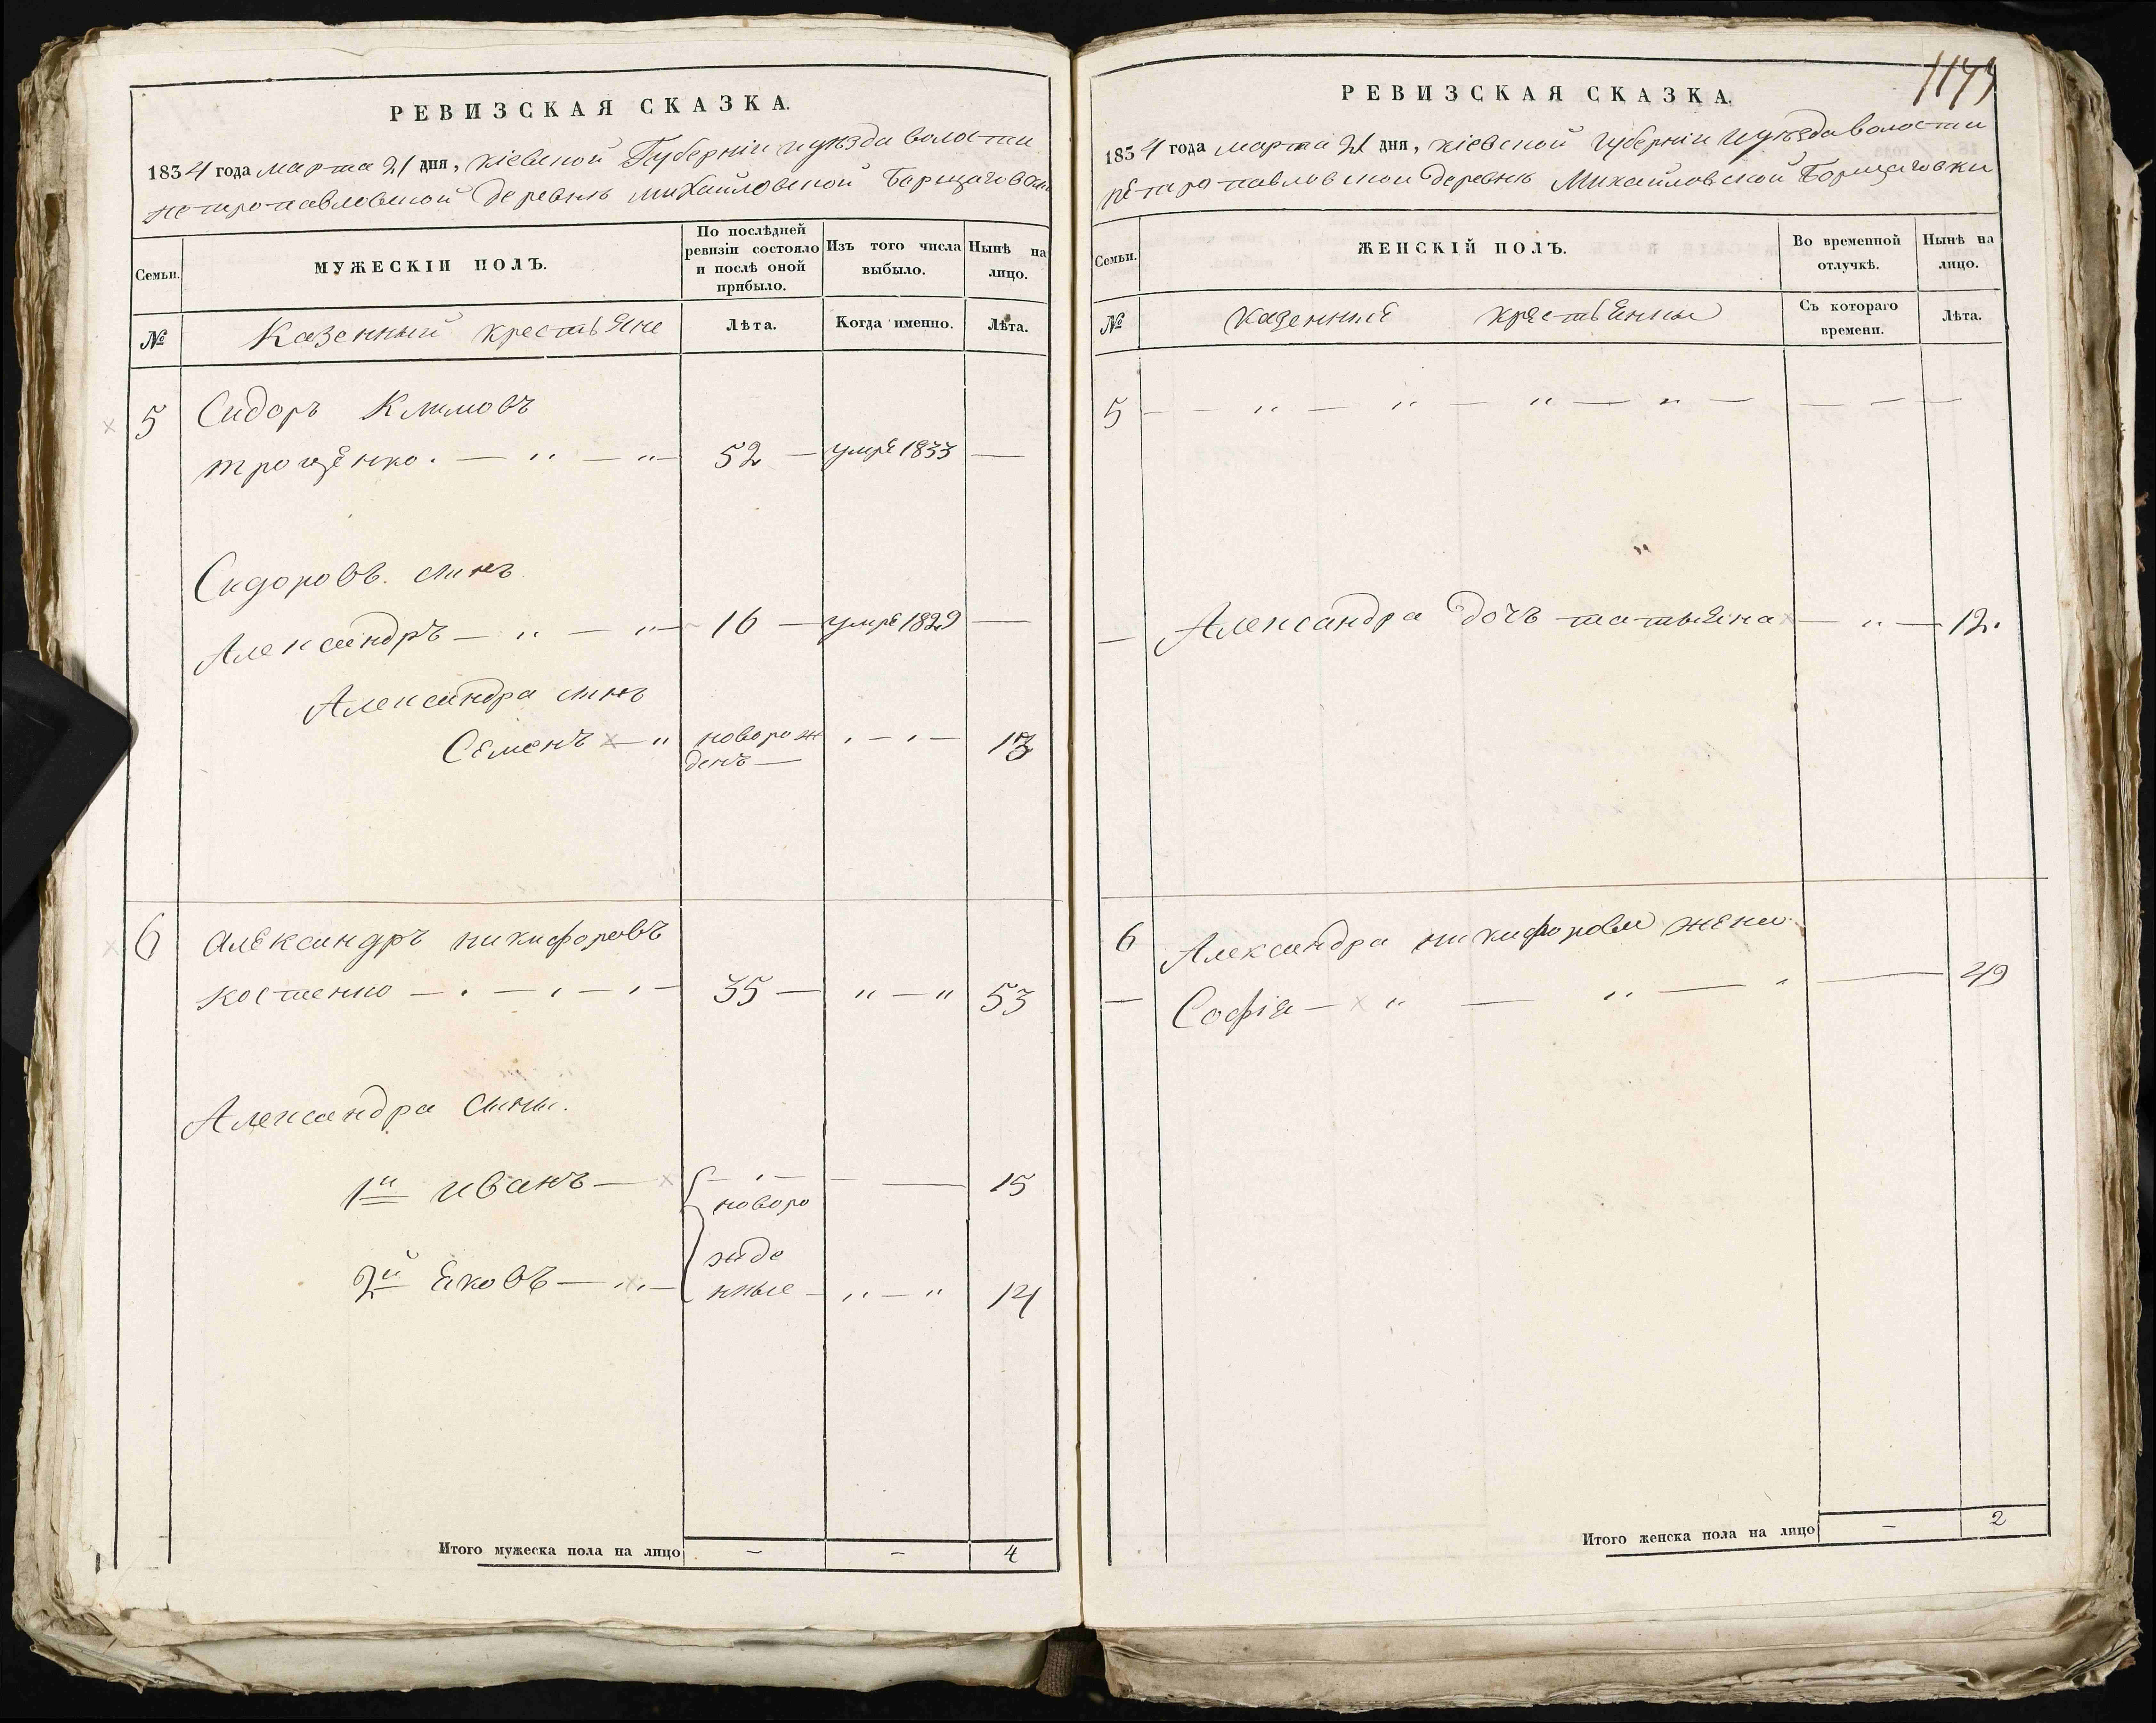 РЕВИЗСКАЯ СКАЗКА.
1834 года марта 21 дня, кіевской Губерніи и уѣзда волости
петропавловской деревнѣ михайловской Борщаговки
Семьи.
МУЖЕСКІЙ ПОЛЪ.
По послѣдней ревизіи состояло и послѣ оной прибыло.
Изъ того числа выбыло.
Нынѣ на лицо.
№
Казенный крестьяне
Лѣта.
Когда именно.
Лѣта.
5 Сидоръ Климовъ
трощенко. — „ — „ — 52 — умре 1833 —
Сидоровъ. сынъ
Александръ — „ — „ — 16 — умре 1829 —
Александра сынъ
Семенъ — „ новорож „ — „ — 13
денъ —
6 Александръ никифоровъ
костенко — . — . — . — 35 — „ — „ 53
Александра сыны.
1й иванъ — — . — — — 15
новоро
жде
2й яковъ — „ — нные — „ — „ 14
Итого мужеска пола на лицо — — 4
1177
РЕВИЗСКАЯ СКАЗКА.
1834 года марта 21 дня, кіевской губерніи и уѣзда волости
петропавловской деревнѣ Михайловской Борщаговки
Семьи.
ЖЕНСКІЙ ПОЛЪ.
Во временной отлучкѣ.
Нынѣ на лицо.
№
казенныя крестьянки
Съ котораго времени.
Лѣта.
5 — — „ — „ — „ — „ — — — —
— Александра дочъ татьяна — „ — 12.
6 Александра никифорова жена
— Софія — „ — „ — „ — 49
Итого женска пола на лицо — 2